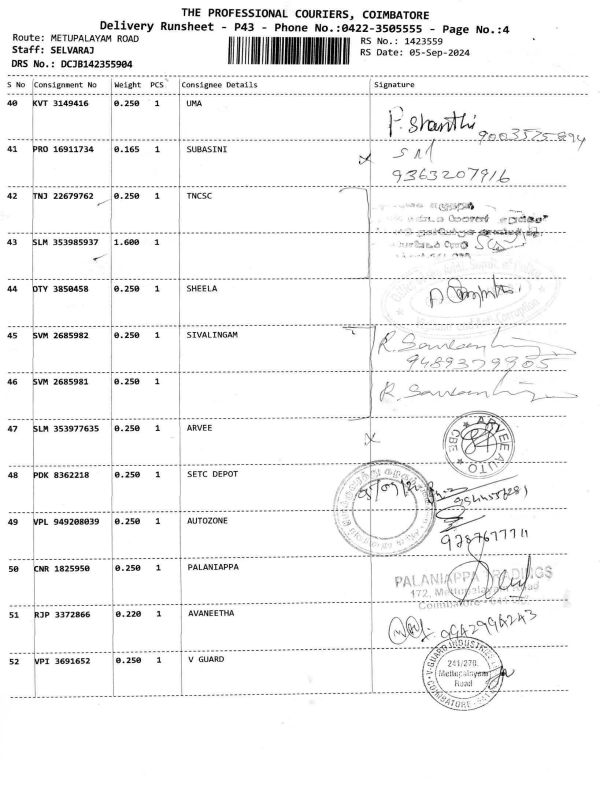 THE PROFESSIONAL COURIERS, COIMBATORE
Delivery Runsheet - P43 - Phone No.:0422-3505555 - Page No.:4
Route: METUPALAYAM ROAD
RS No.: 1423559
Staff: SELVARAJ
RS Date: 05-Sep-2024
DRS No.: DCJB142355904
S No Consignment No Weight PCS Consignee Details Signature
40 KVT 3149416 0.250 1 UMA
P. Shanthi
9003525894
41 PRO 16911734 0.165 1 SUBASINI
9363207916
42 TNJ 22679762 0.250 1 TNCSC
43 SLM 353985937 1.600 1
44 OTY 3850458 0.250 1 SHEELA
45 SVM 2685982 0.250 1 SIVALINGAM
9489379905
46 SVM 2685981 0.250 1
47 SLM 353977635 0.250 1 ARVEE
ARVEE AUTO
CBE
48 PDK 8362218 0.250 1 SETC DEPOT
49 VPL 949208039 0.250 1 AUTOZONE
9787677711
50 CNR 1825950 0.250 1 PALANIAPPA
PALANIAPPA
172,
Coimbatore
51 RJP 3372866 0.220 1 AVANEETHA
9942994243
52 VPI 3691652 0.250 1 V GUARD
V-GUARD INDUSTRIES
241/270.
Mettupalayam
Road
COIMBATORE